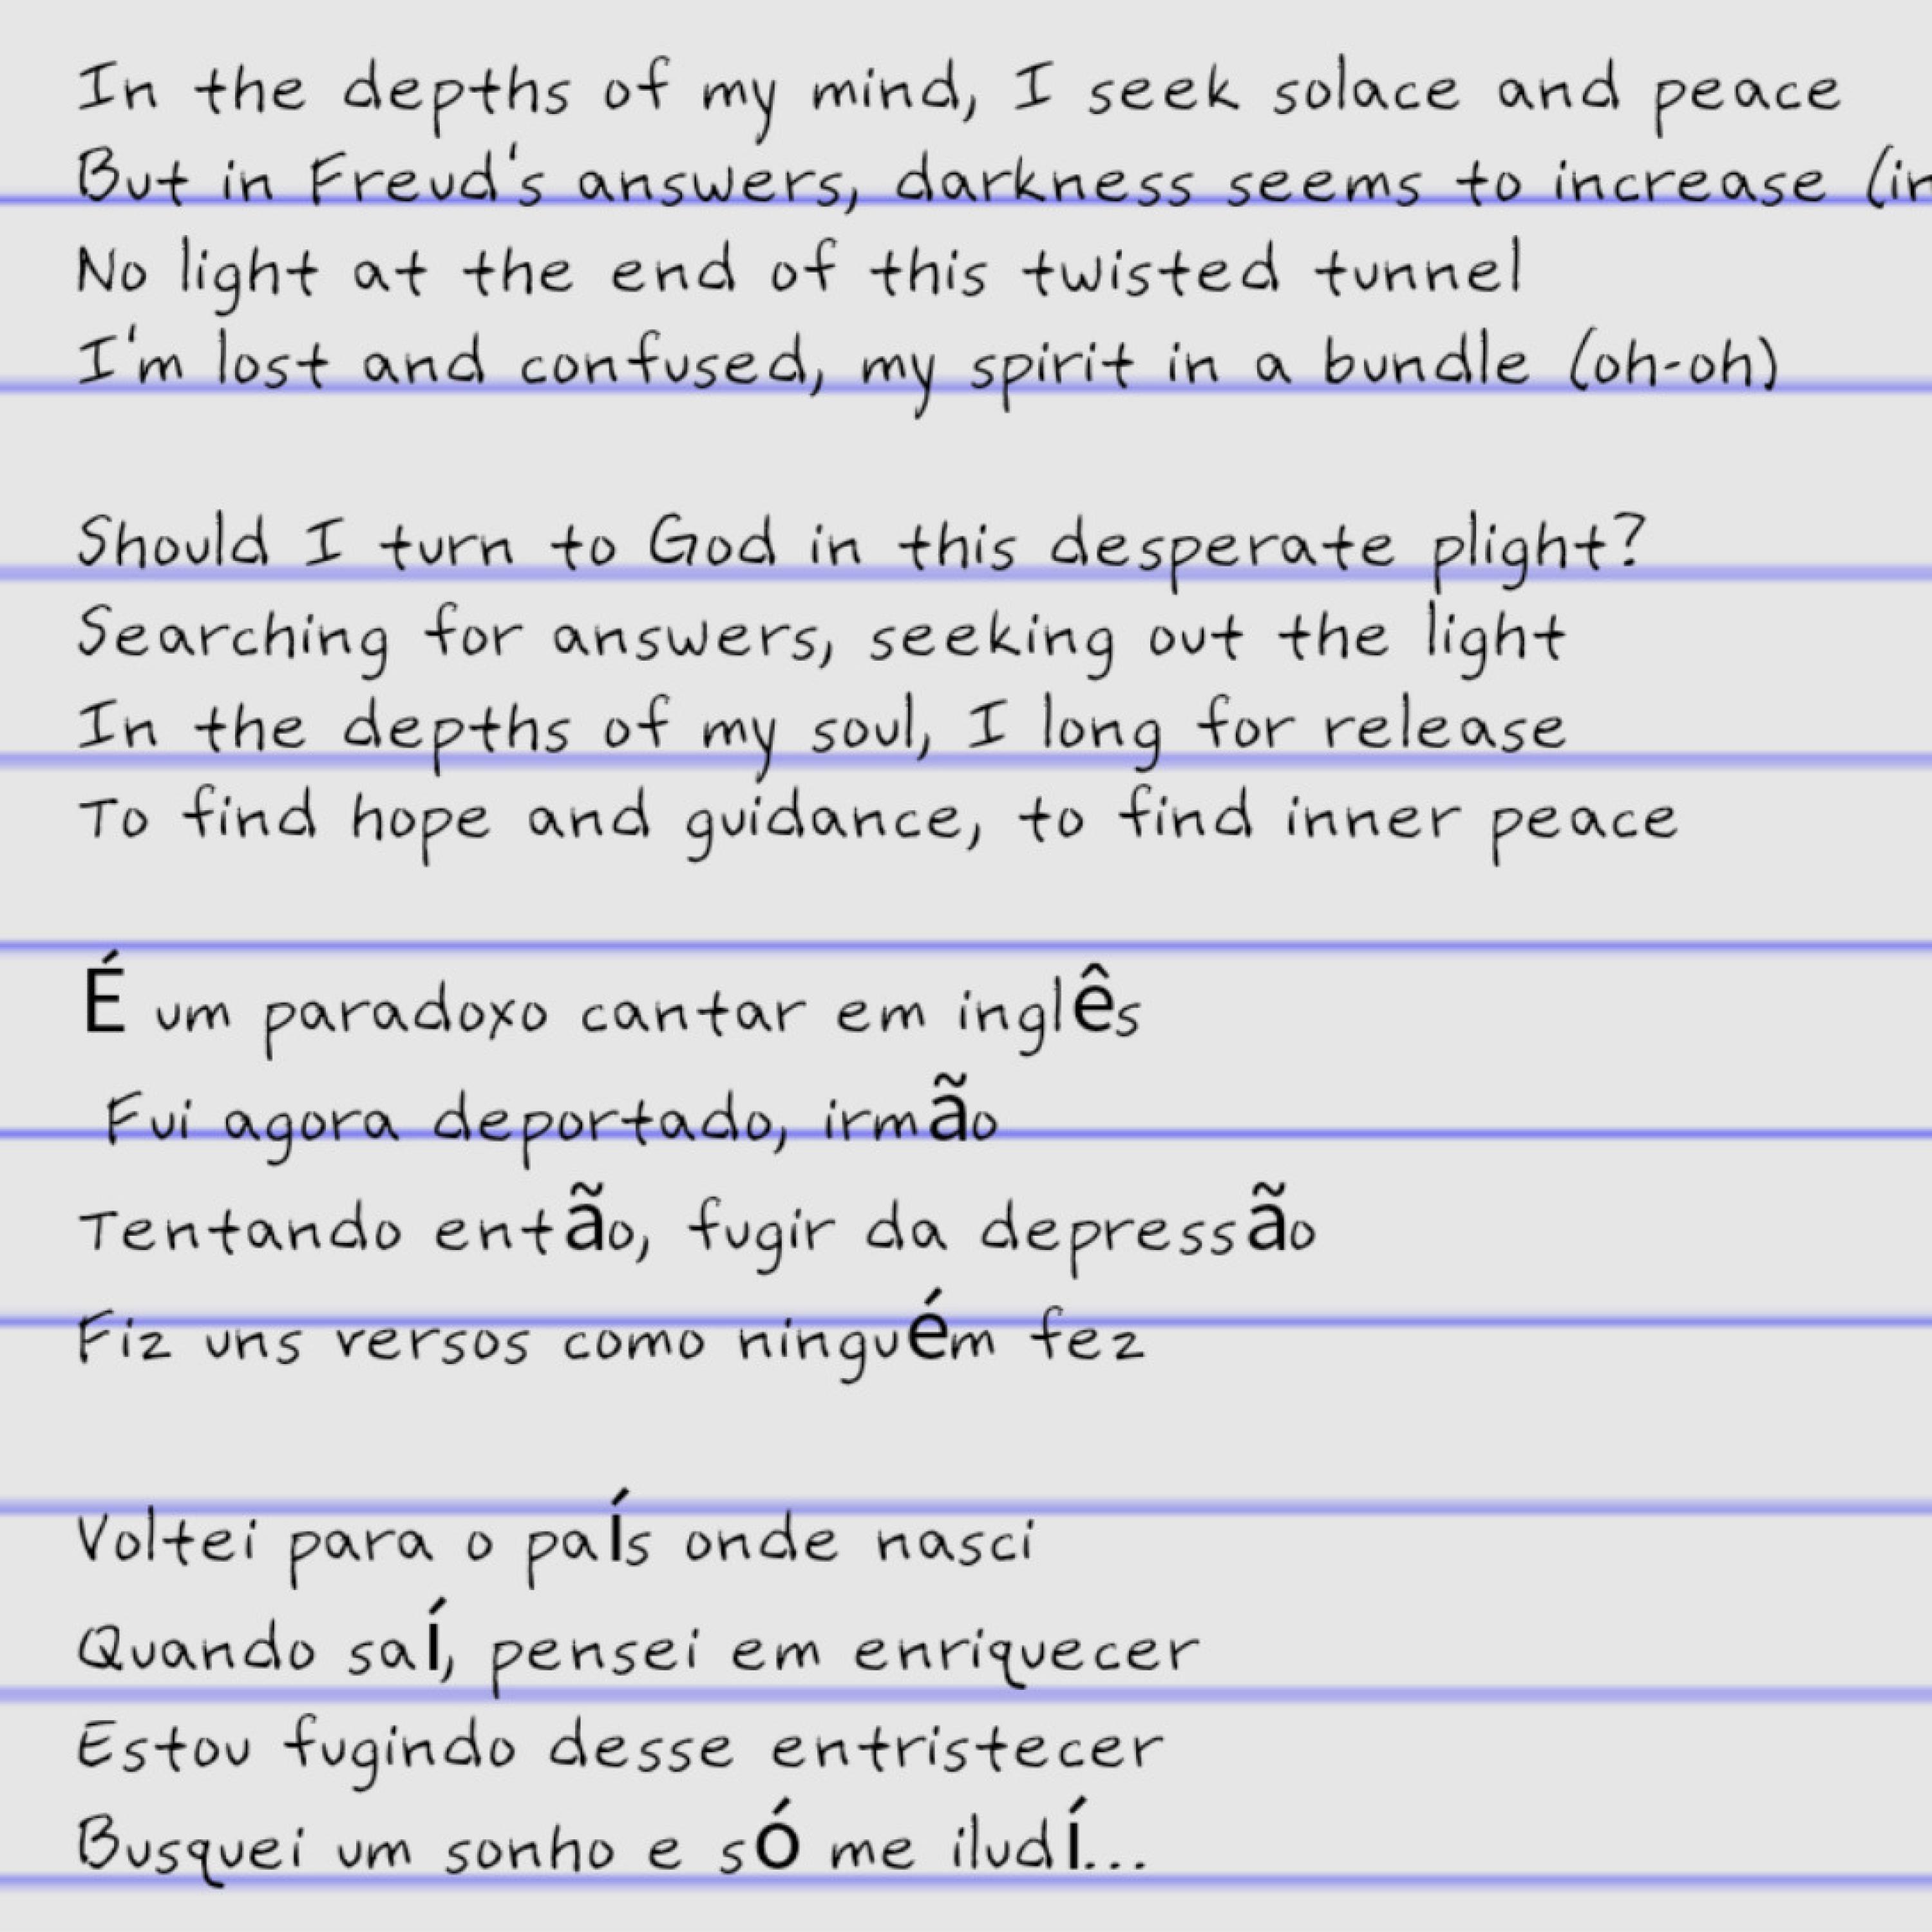 In the depths of my mind, I seek solace and peace
But in Freud's answers, darkness seems to increase
No light at the end of this twisted tunnel
I'm lost and confused, my spirit in a bundle (oh-oh)
Should I turn to God in this desperate plight?
Searching for answers, seeking out the light
In the depths of my soul, I long for release
To find hope and guidance, to find inner peace
É um paradoxo cantar em inglês
Fui agora deportado, irmão
Tentando então, fugir da depressão
Fiz uns versos como ninguém fez
Voltei para o país onde nasci
Quando saí, pensei em enriquecer
Estou fugindo desse entristecer
Busquei um sonho e só me iludí...